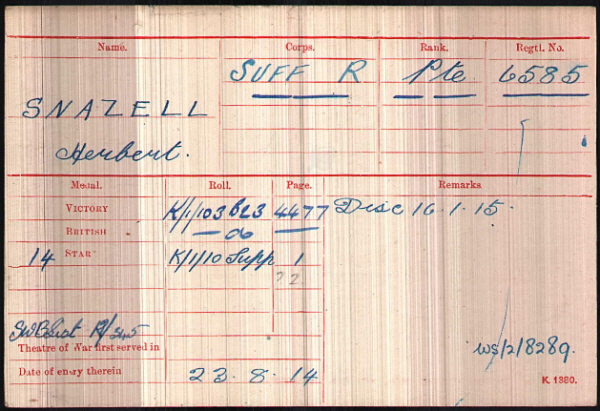 Name. Corps. Rank. Regtl. No.
SUFF R Pte 6585
SNAZELL
Herbert.
Medal. Roll. Page. Remarks
VICTORY K/1/103 B23 4477 Disc 16.1.15.
BRITISH — do —
14 STAR K/1/10 Supp 1
22
R/345
Theatre of War first served in
WS/2/8289.
Date of entry therein 23.8.14
K. 1380.